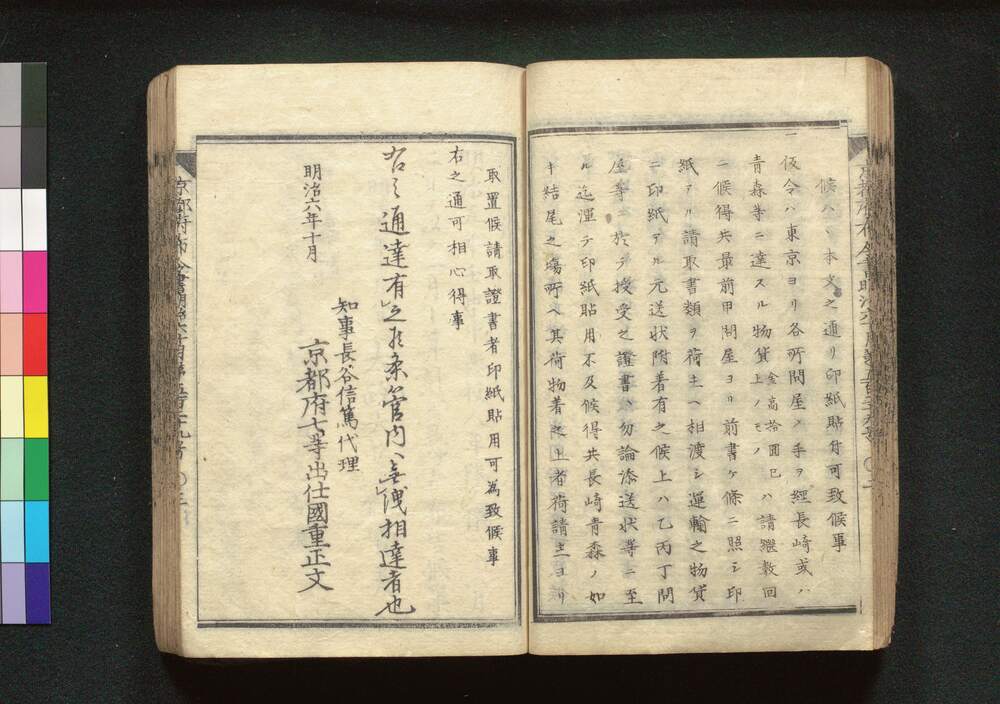 候ハヽ本文之通リ印紙貼付可致候事
一仮令ハ東京ヨリ各所問屋ノ手ヲ經長崎或ハ
青森等ニ達スル物貨金高拾圓已上ノモノハ請繼数回
ニ候得共最前甲問屋ヨリ前書ケ條ニ照シ印
紙アル請取書類ヲ荷主ヘ相渡シ運輸之物貨
ニ印紙アル元送状附着有之候上ハ乙丙丁問
屋等ニ於テ授受之證書ハ勿論添送状等ニ至
ル迄渾テ印紙貼用不及候得共長崎青森ノ如
キ結尾之場所ヘ其荷物着之上者荷請主ヨリ
取置候請取證書者印紙貼用可為致候事
右之通可相心得事
右之通達有之候条管内ヘ無洩相達者也
明治六年十月
知事長谷信篤代理
京都府七等出仕國重正文